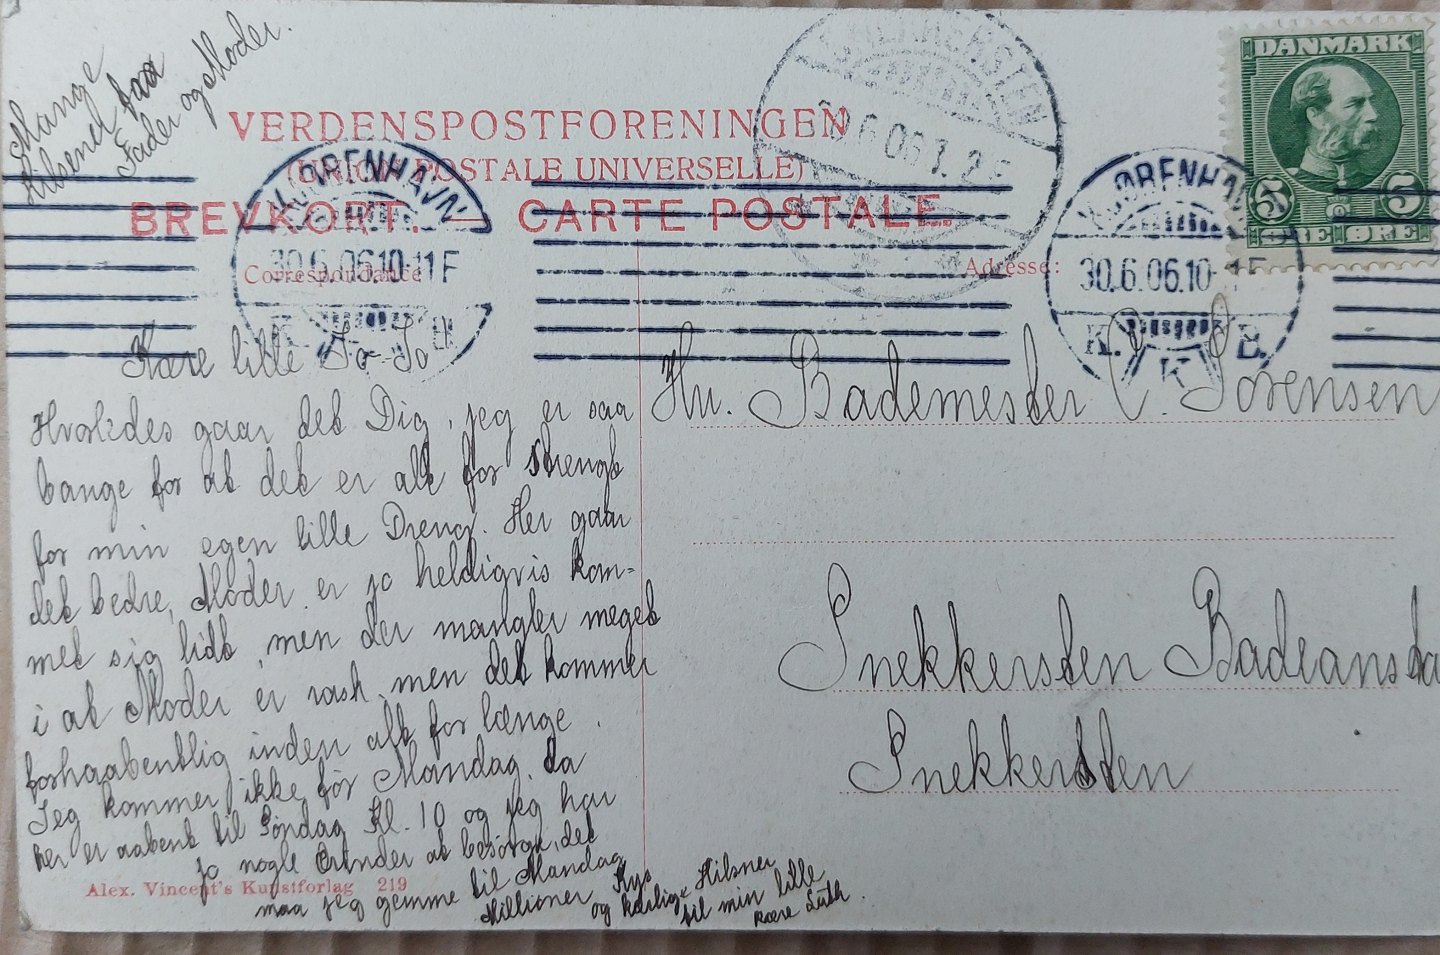 Mange
Hilsener fra
Fader og Moder.
DANMARK
5 5
ØRE ØRE
VERDENSPOSTFORENINGEN
(UNION POSTALE UNIVERSELLE)
BREVKORT. — CARTE POSTALE.
SNEKKERSTEN
KJØBENHAVN
30.6.06.10-11F
K. K B.
KJØBENHAVN
30.6.06.10-11F
K. K B.
Correspondance
Adresse:
Kære lille So-So
Hvorledes gaar det Dig, jeg er saa
bange for at det er alt for strengt
for min egen lille Dreng. Her gaar
det bedre, Moder er jo heldigvis kom-
met sig lidt, men der mangler meget
i at Moder er rask, men det kommer
forhaabentlig inden alt for længe.
Jeg kommer ikke før Mandag, da
her er aabent til Søndag Kl. 10 og jeg har
jo nogle Ærinder at besørge, det
maa jeg gemme til Mandag
Millioner Kys
og kærlige Hilsner
til min lille
kære
Hr. Bademester C. Sørensen
Snekkersten Badeansta
Snekkersten
Alex. Vincent's Kunstforlag 219